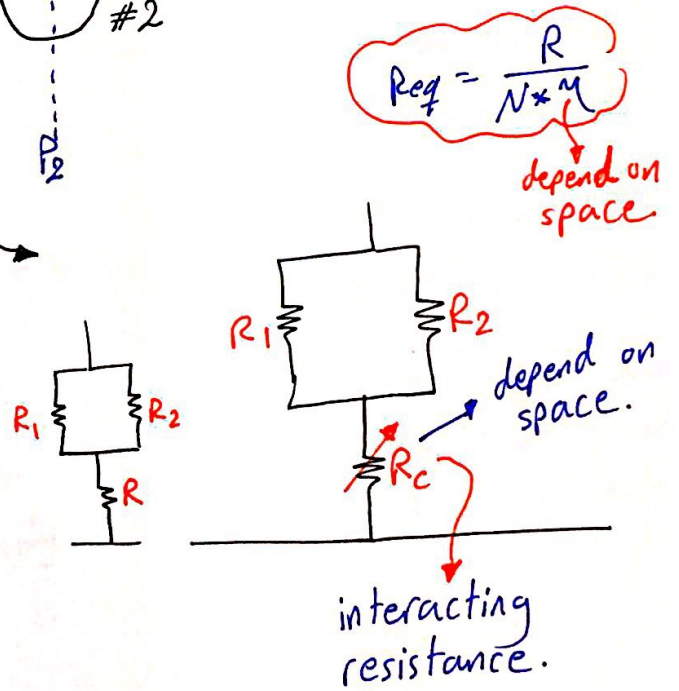 #2
P2
Req = R / N * η
depend on
space.
R1
R2
R
R1
R2
Rc
depend on
space.
interacting
resistance.